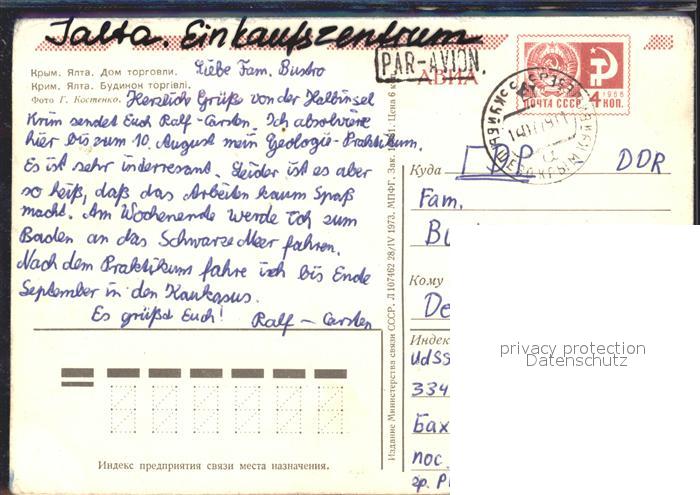 Jalta. Einkaufszentrum
PAR-AVION.
АВИА
Крым. Ялта. Дом торговли.
Крим. Ялта. Будинок торгівлі.
Фото Г. Костенко.
Liebe Fam. Bustro
Herzlich Grüße von der Halbinsel
Krim sendet Euch Ralf-Carsten. Ich absolviere
hier bis zum 10. August mein Geologie-Praktikum.
Es ist sehr interresant. Leider ist es aber
so heiß, daß das Arbeiten kaum Spaß
macht. Am Wochenende werde ich zum
Baden an das Schwarze Meer fahren.
Nach dem Praktikum fahre ich bis Ende
September in den Kaukasus.
Es grüßt Euch! Ralf - Carsten
Индекс предприятия связи места назначения.
Издание Министерства связи СССР. Л107462 28/IV 1973. МПФГ. Зак. Цена 6 к
ПОЧТА СССР 4 КОП.
1966
Куда
DDR
Fam.
Bu
Кому
De
Индекс
UdSS
334
Бах
пос.
гр. Р
privacy protection
Datenschutz